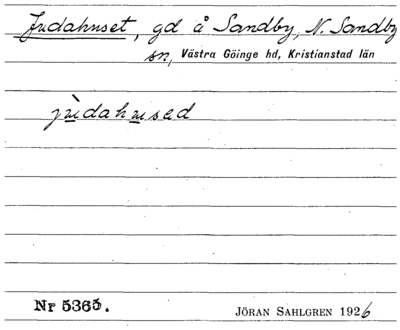 Judahuset, gd å Sandby, N. Sandby
sn, Västra Göinge hd, Kristianstad län
jùdahused
Nr 5365.
JÖRAN SAHLGREN 1926